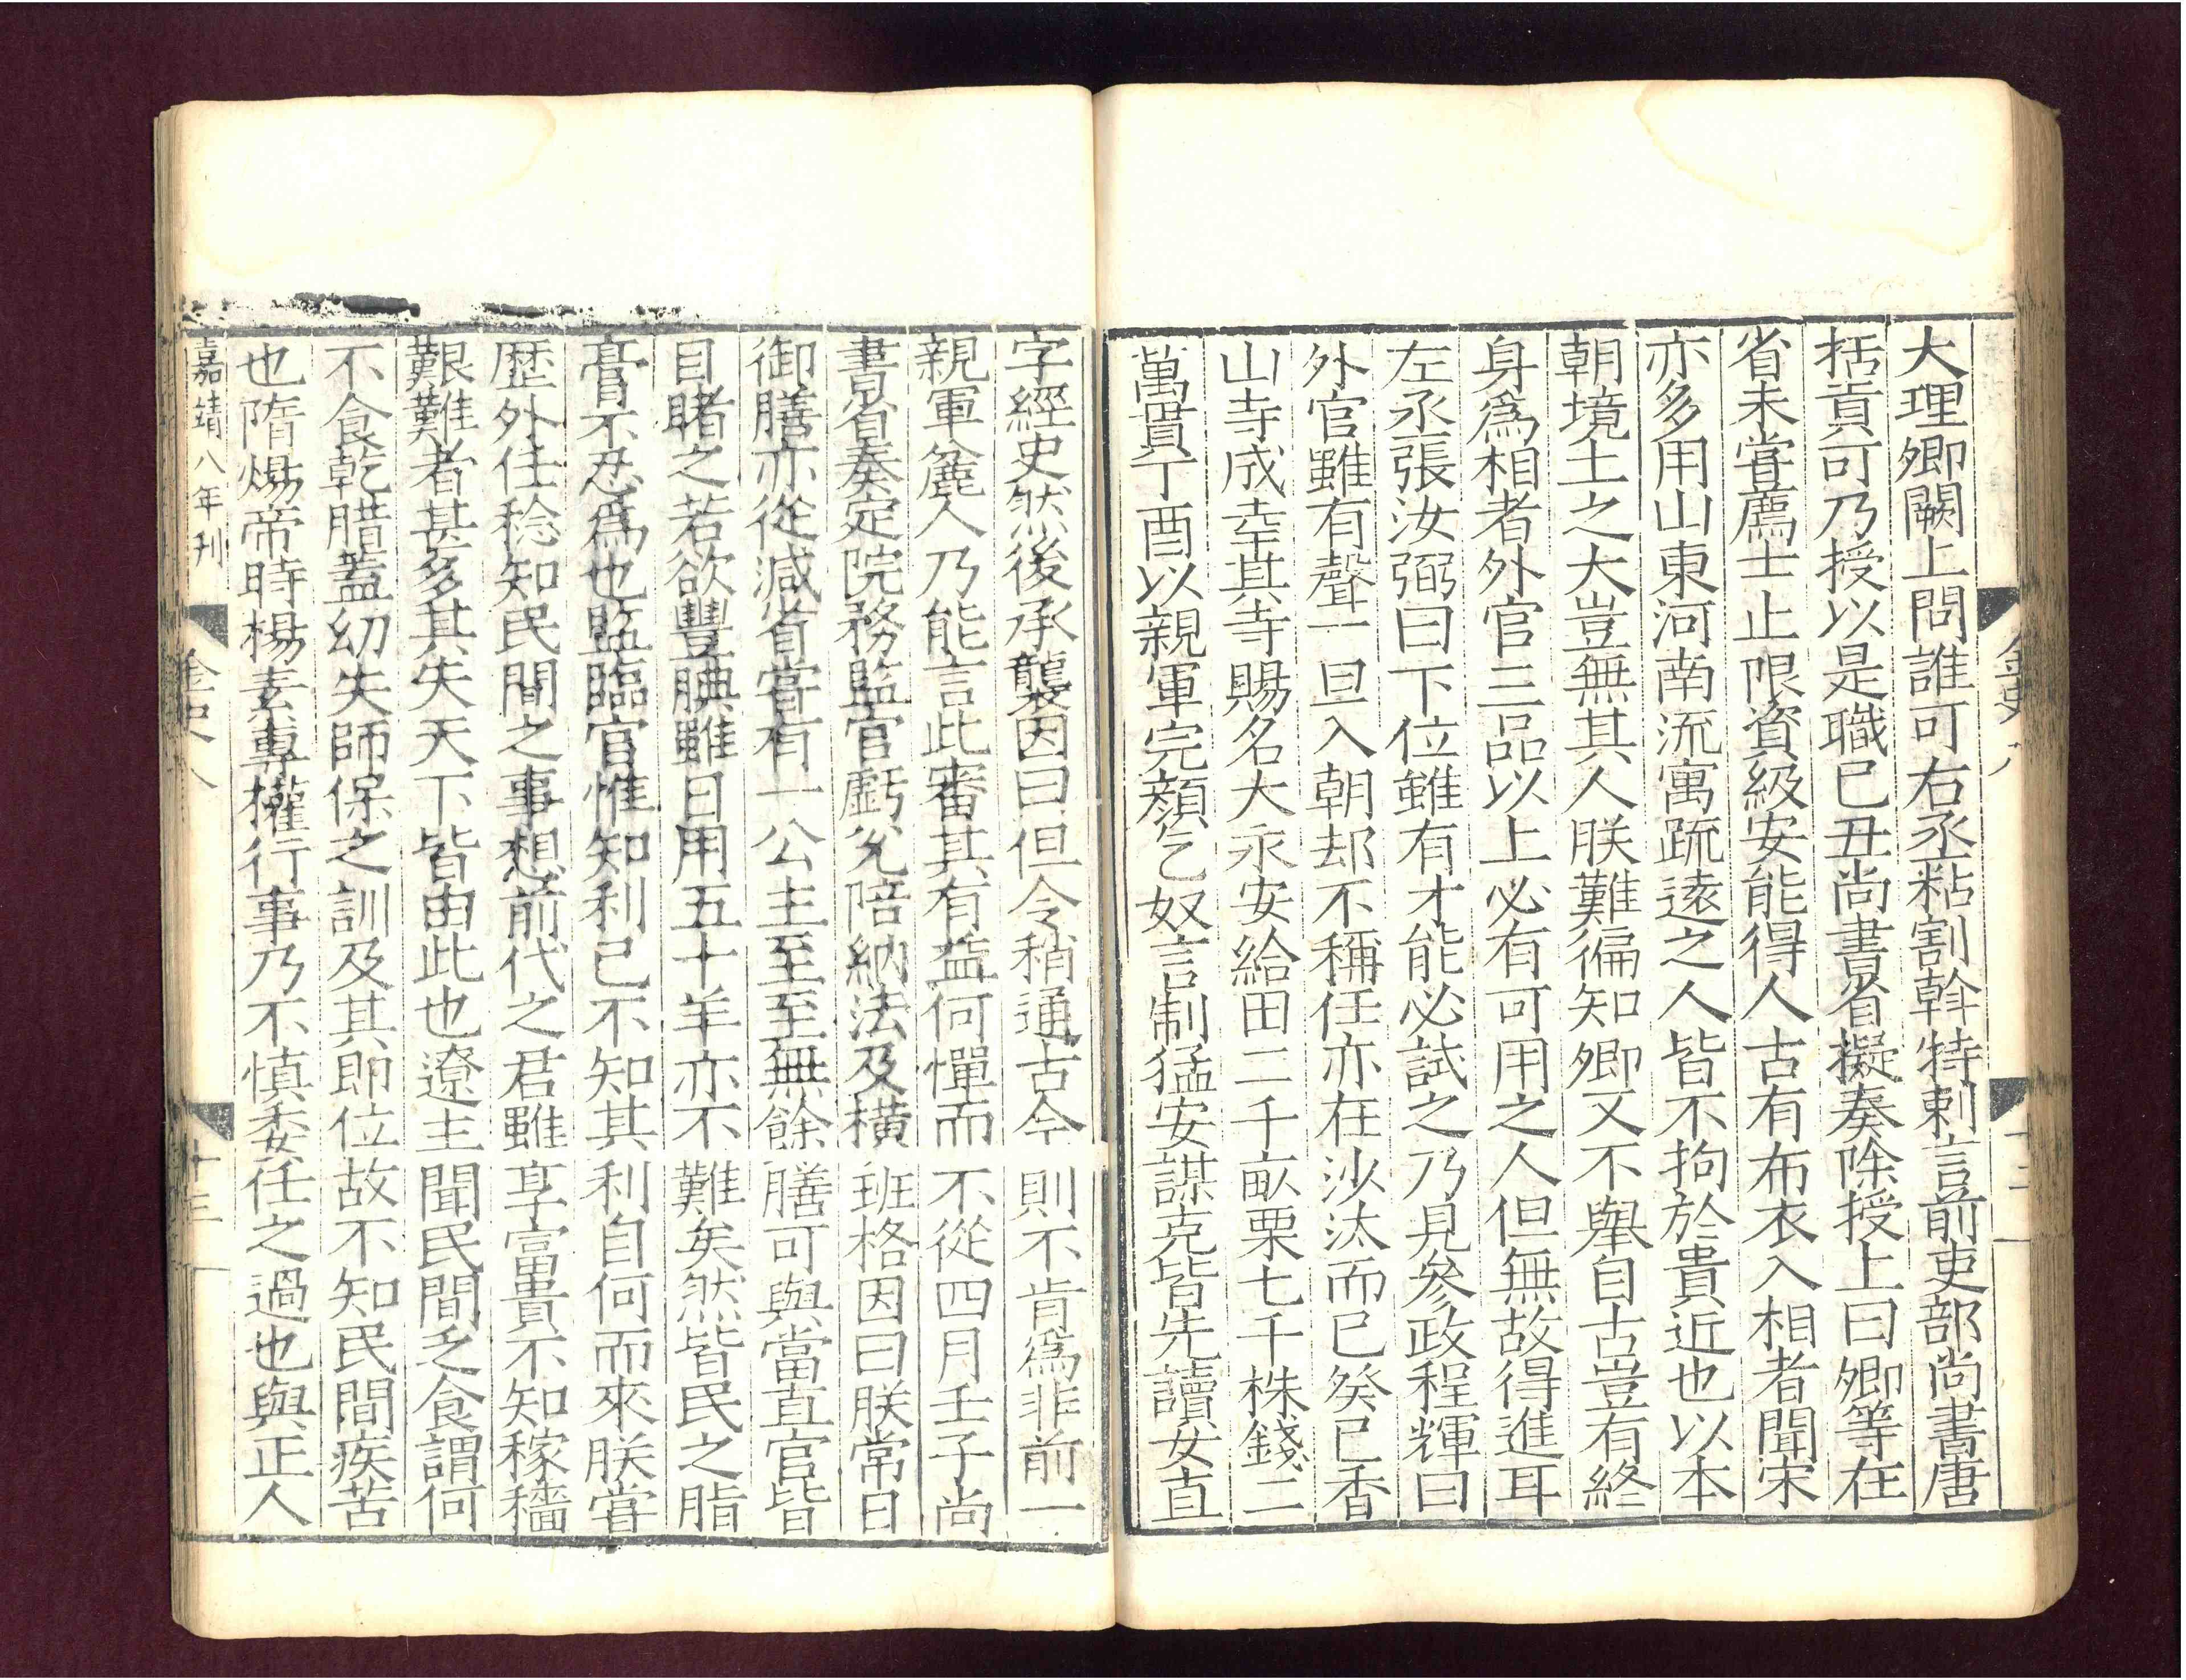 金史八
十二
大理卿闕上問誰可右丞粘割斡特剌言前吏部尚書唐
括貢可乃授以是職巳丑尚書省擬奏除授上曰卿等在
省未甞薦士止限資級安能得人古有布衣入相者聞宋
亦多用山東河南流寓疏逺之人皆不拘於貴近也以本
朝境土之大豈無其人朕難徧知卿又不舉自古豈有終
身爲相者外官三品以上必有可用之人但無故得進耳
左丞張汝弼曰下位雖有才能必試之乃見參政程輝曰
外官雖有聲一旦入朝却不稱任亦在沙汰而已癸巳香
山寺成幸其寺賜名大永安給田二千畝栗七千株錢二
萬貫丁酉以親軍完顏乞奴言制猛安謀克皆先讀女直
字經史然後承襲因曰但令稍通古今則不肯爲非前一
親軍麄人乃能言此審其有益何憚而不從四月壬子尚
書省奏定院務監官虧兊陪納法及橫班格因曰朕常日
御膳亦從減省甞有一公主至至無餘膳可與當直官皆
目睹之若欲豐腆雖日用五十羊亦不難矣然皆民之脂
膏不忍爲也監臨官惟知利己不知其利自何而來朕甞
歷外任稔知民間之事想前代之君雖享富貴不知稼穡
艱難者甚多其失天下皆由此也遼主聞民間乏食謂何
不食乾腊蓋幼失師保之訓及其即位故不知民間疾苦
也隋煬帝時楊素專權行事乃不慎委任之過也與正人
嘉靖八年刊
金史八
十三